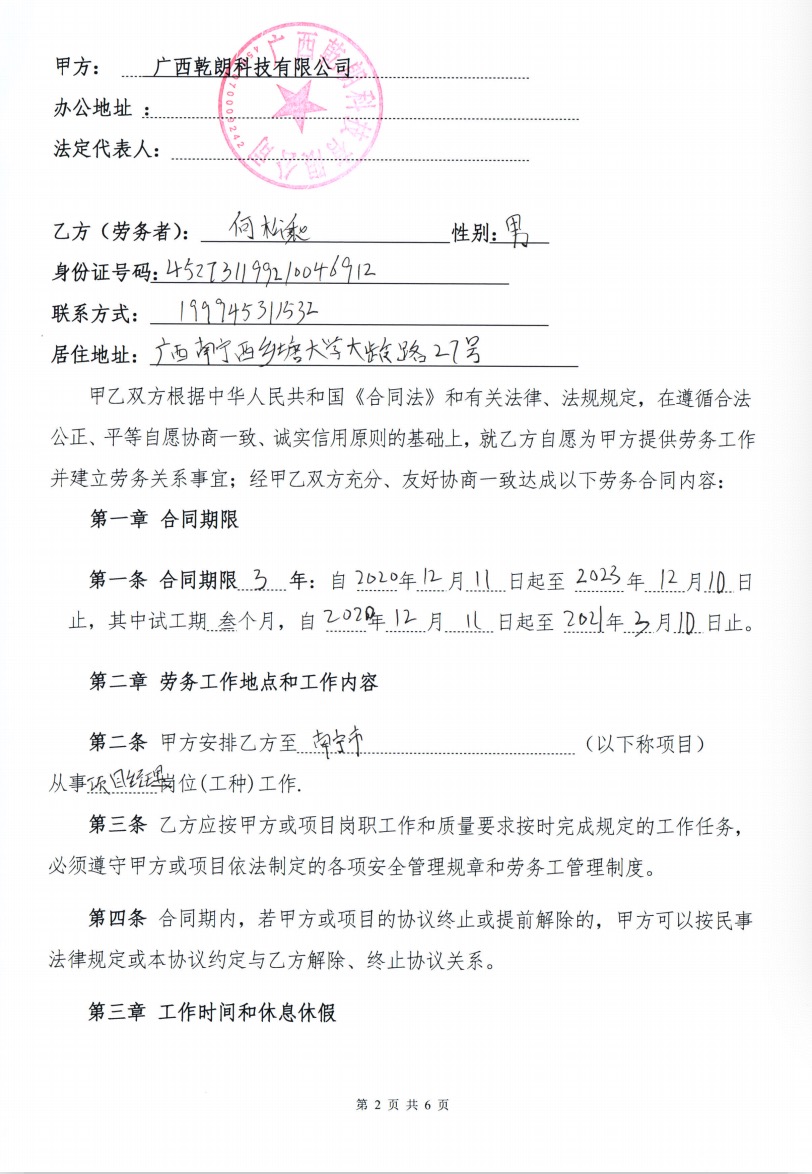 甲方： 广西乾朗科技有限公司
广西乾朗科技有限公司
办公地址 ：
法定代表人：
乙方（劳务者）： 何松 性别：男
身份证号码：
联系方式： 19994531532
居住地址： 广西南宁西乡塘大学大岭路27号
甲乙双方根据中华人民共和国《合同法》和有关法律、法规规定，在遵循合法
公正、平等自愿协商一致、诚实信用原则的基础上，就乙方自愿为甲方提供劳务工作
并建立劳务关系事宜；经甲乙双方充分、友好协商一致达成以下劳务合同内容：
第一章 合同期限
第一条 合同期限 3 年：自 2020年 12 月 11 日起至 2023 年 12 月 10 日
止，其中试工期 叁个月，自 2020年 12 月 11 日起至 2021年 3 月 10 日止。
第二章 劳务工作地点和工作内容
第二条 甲方安排乙方至 南宁市 （以下称项目）
从事项目经理岗位(工种)工作.
第三条 乙方应按甲方或项目岗职工作和质量要求按时完成规定的工作任务，
必须遵守甲方或项目依法制定的各项安全管理规章和劳务工管理制度。
第四条 合同期内，若甲方或项目的协议终止或提前解除的，甲方可以按民事
法律规定或本协议约定与乙方解除、终止协议关系。
第三章 工作时间和休息休假
第 2 页 共 6 页